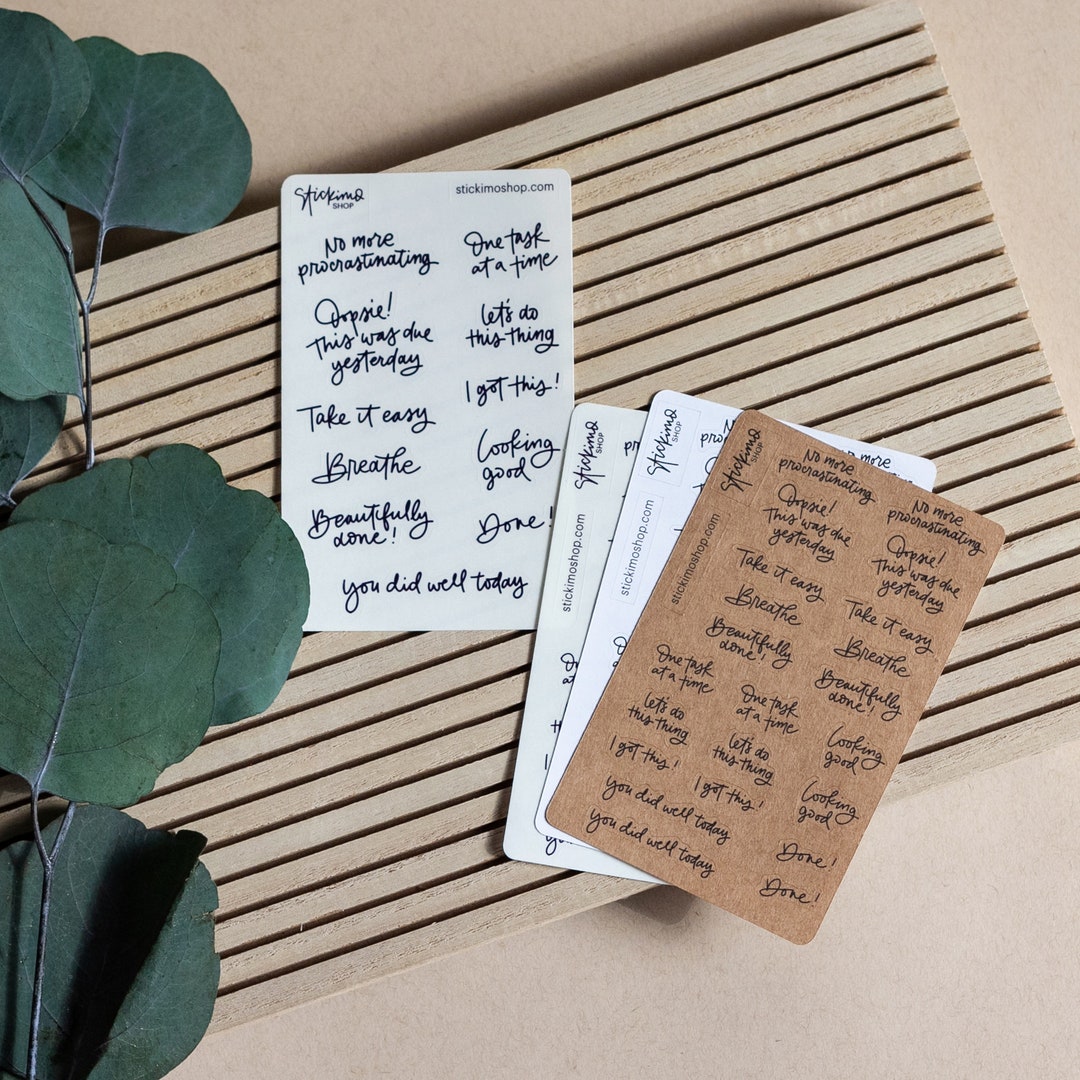 Stickimo
SHOP
stickimoshop.com
No more
procrastinating
One task
at a time
Oopsie!
This was due
yesterday
Let's do
this thing
I got this!
Take it easy
Breathe
Looking
good
Beautifully
done!
Done!
You did well today
Stickimo
SHOP
stickimoshop.com
Stickimo
SHOP
stickimoshop.com
No more
Stickimo
SHOP
stickimoshop.com
No more
procrastinating
No more
procrastinating
Oopsie!
This was due
yesterday
Oopsie!
This was due
yesterday
Take it easy
Take it easy
Breathe
Breathe
Beautifully
done!
Beautifully
done!
One task
at a time
One task
at a time
Let's do
this thing
Let's do
this thing
I got this!
I got this!
Looking
good
Looking
good
You did well today
You did well today
Done!
Done!